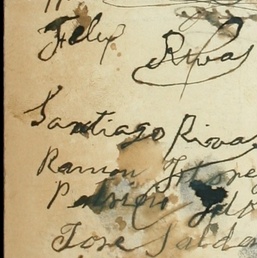 Felix Rivas
Santiago Rivas
Ramon Flores
Patricio
Jose Salda